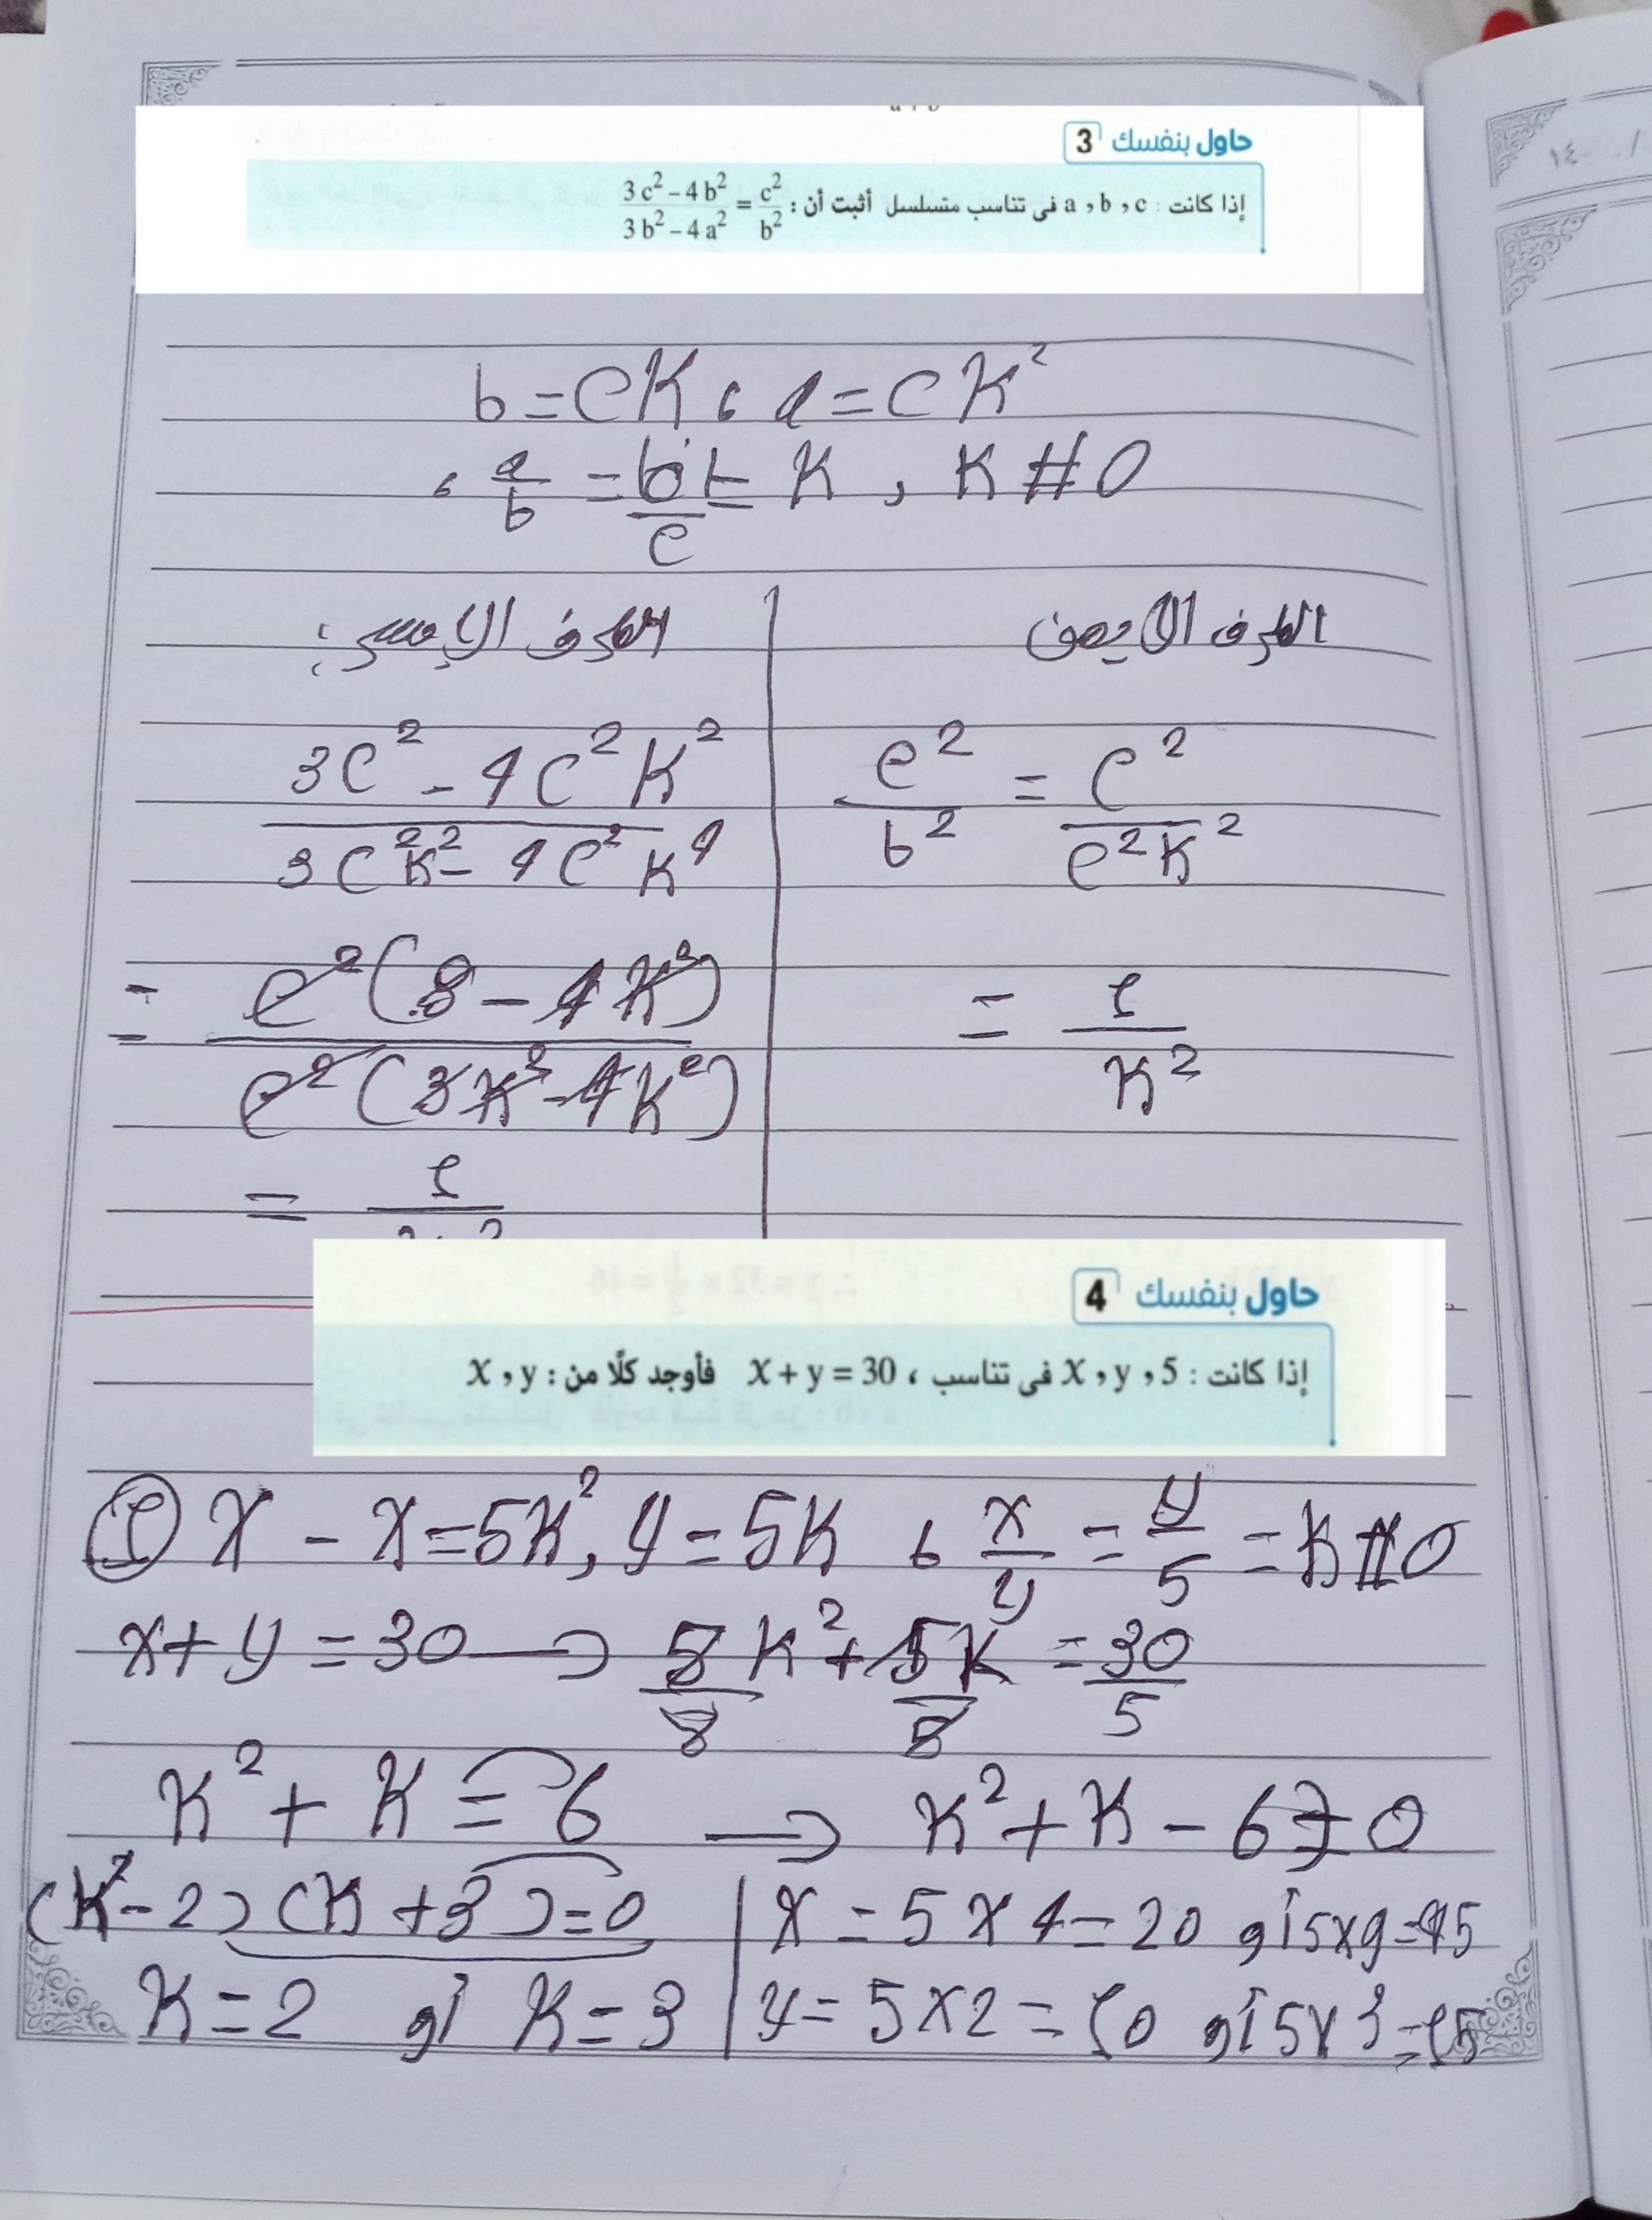 حاول بنفسك 3
إذا كانت : a , b , c فى تناسب متسلسل أثبت أن : (3c² − 4b²)/(3b² − 4a²) = c²/b²
b = cK ، a = cK²
، a/b = b/c = K , K ≠ 0
الطرف الايمن
c²/b² = c²/(c²K²)
= 1/K²
الطرف الايسر :
(3c² − 4c²K²)/(3c²K² − 4c²K⁴)
= c²(3 − 4K²)/c²(3K² − 4K²)
= 1/
حاول بنفسك 4
إذا كانت : X , y , 5 فى تناسب ، X + y = 30 فأوجد كلًا من : X , y
① X − X = 5K² , y = 5K ، x/y = y/5 = K ≠ 0
x + y = 30 → 5/5 K² + 5K/5 = 30/5
K² + K = 6 → K² + K − 6 = 0
(K − 2) (K + 3) = 0
K = 2 أو K = 3
X = 5 × 4 = 20 أو 5×9 = 45
y = 5 × 2 = 10 أو 5×3 = 15